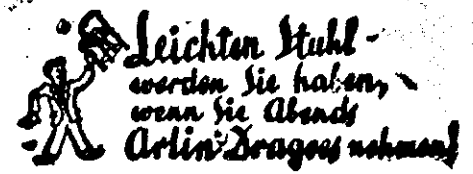 Leichten Stuhl -
werden Sie haben,
wenn Sie Abends
Arlin-Dragees nehmen!